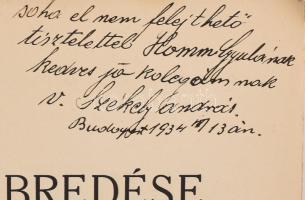 soha el nem felejthető
tisztelettel Homm Gyulának
kedves jó kolegámnak
v. Székely András.
Budapest 1934 13án.
BREDÉSE